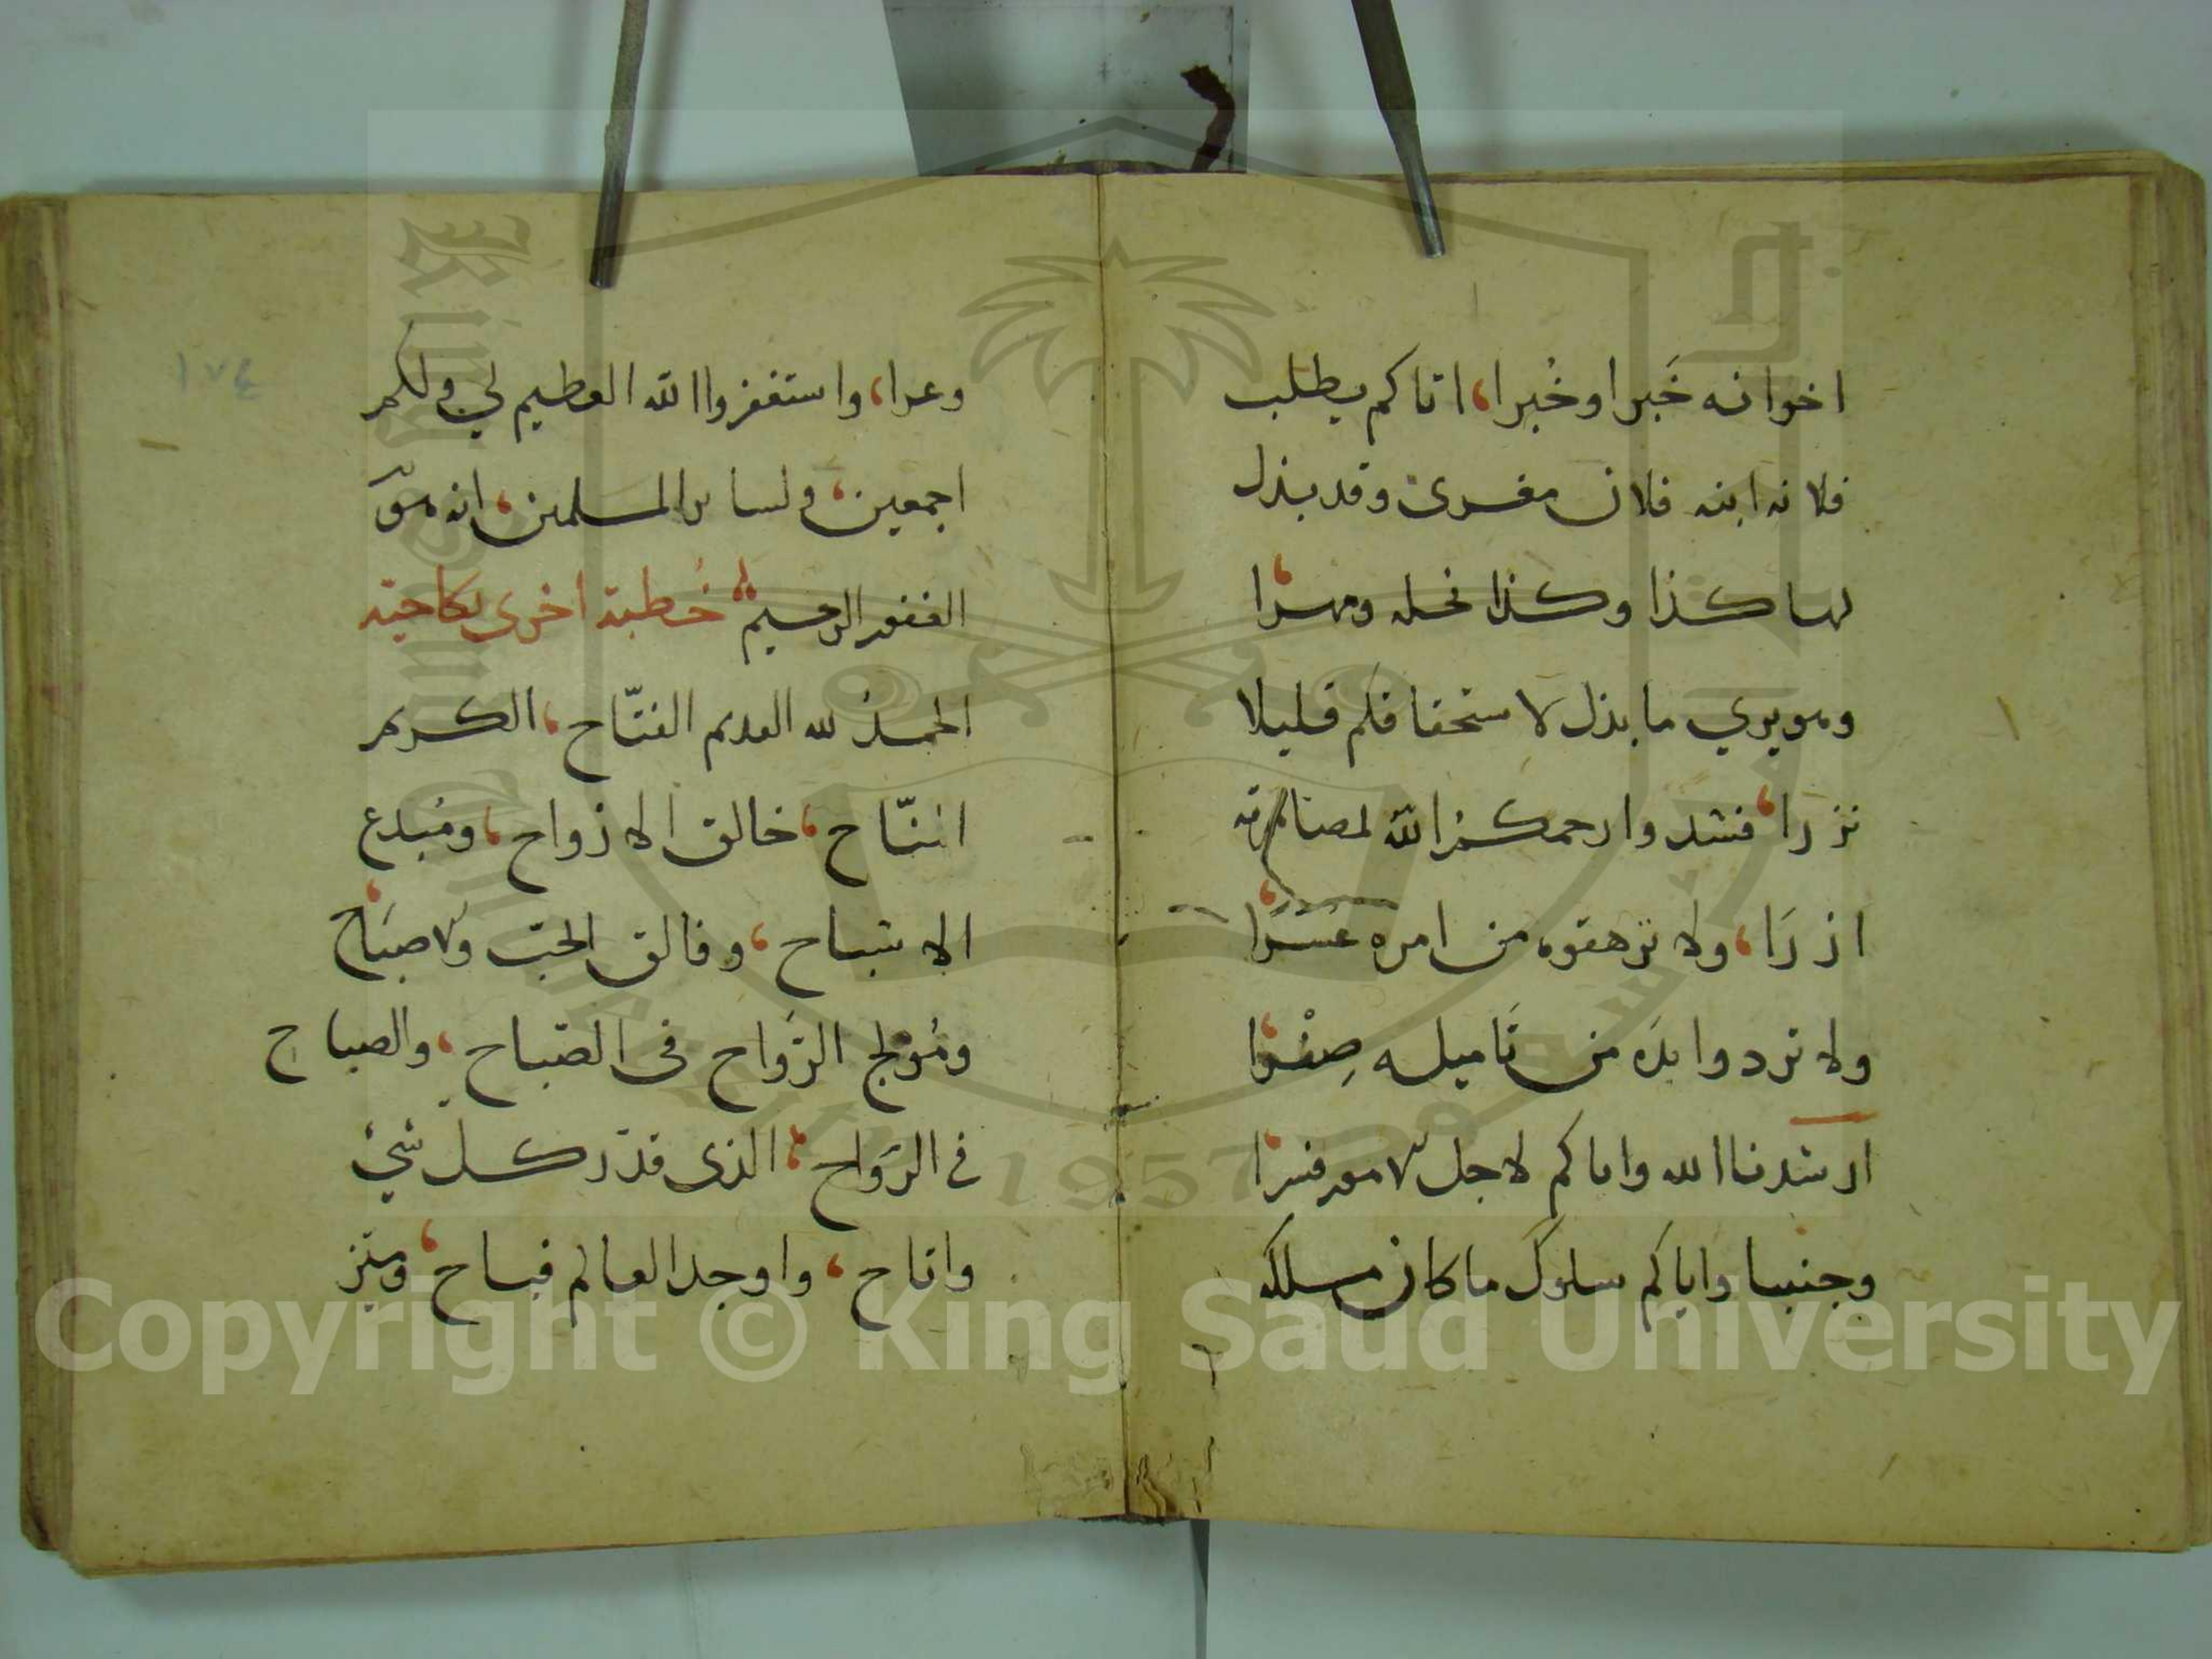 اخوانه خَبرا وخُبرا، اتاكم يطلب
فلانه ابنه فلان مغرى وقد بذل
لها كذا وكذا نحله ومهرا،
وهو يرى ما بذل لاستحقاقكم قليلا
نزرا، فشدوا رحمكم الله لمصاهرته
ازرَا، ولا ترهقوه من امره عسْرًا،
ولا تردوا يدَه من تاميله صِفْرا،
ارشدنا الله واياكم لاجل الامور قدرا،
وجنبنا واياكم سلوك ما كان مسلكه
وعرا، واستغفروا الله العظيم لي ولكم
اجمعين، ولسائر المسلمين، انه هوَ
الغفور الرحيم خُطبة اخرى نكاحية
الحمدُ لله القديم الفتّاح، الكريم
المنّاح، خالق الازواح، ومُبدع
الاشباح، وفالق الحبّ والاصبَاح،
ومُولج الرَواح في الصَباح، والصباح
في الرَواح، الذي قدّر كل شيء
واتاح، واوجد العالم فباح، وميّز
١٧٤
1957
Copyright © King Saud University